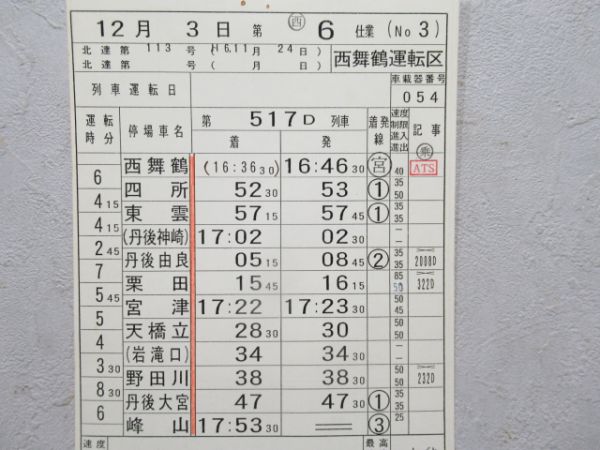 12月 3日 第 ㊄ 6 仕業 (No 3)
北達第 113 号 (H6.11月 24日)
北達第 号 ( 月 日)
西舞鶴運転区
列車運転日
車載器番号
054
運転時分 停車場名 第 517D 列車 着発線 速度制限 進入 進出 記事
着 発
乗
西舞鶴 (16:36 30) 16:46 30 宮 40 ATS
6
四所 52 30 53 ① 35 50
4 15
東雲 57 15 57 45 ① 35 35
4 15
(丹後神崎) 17:02 02 30 – –
2 45
丹後由良 05 15 08 45 ② 35 35 2008D
7
栗田 15 45 16 15 85 50 322D
5 45
宮津 17:22 17:23 30 50 45
5
天橋立 28 30 30 50 50
4
(岩滝口) 34 34 30 – –
3 30
野田川 38 38 30 50 50 232D
8 30
丹後大宮 47 47 30 ① 35 35
6
峰山 17:53 30 ═ ③ 25
速度 最高